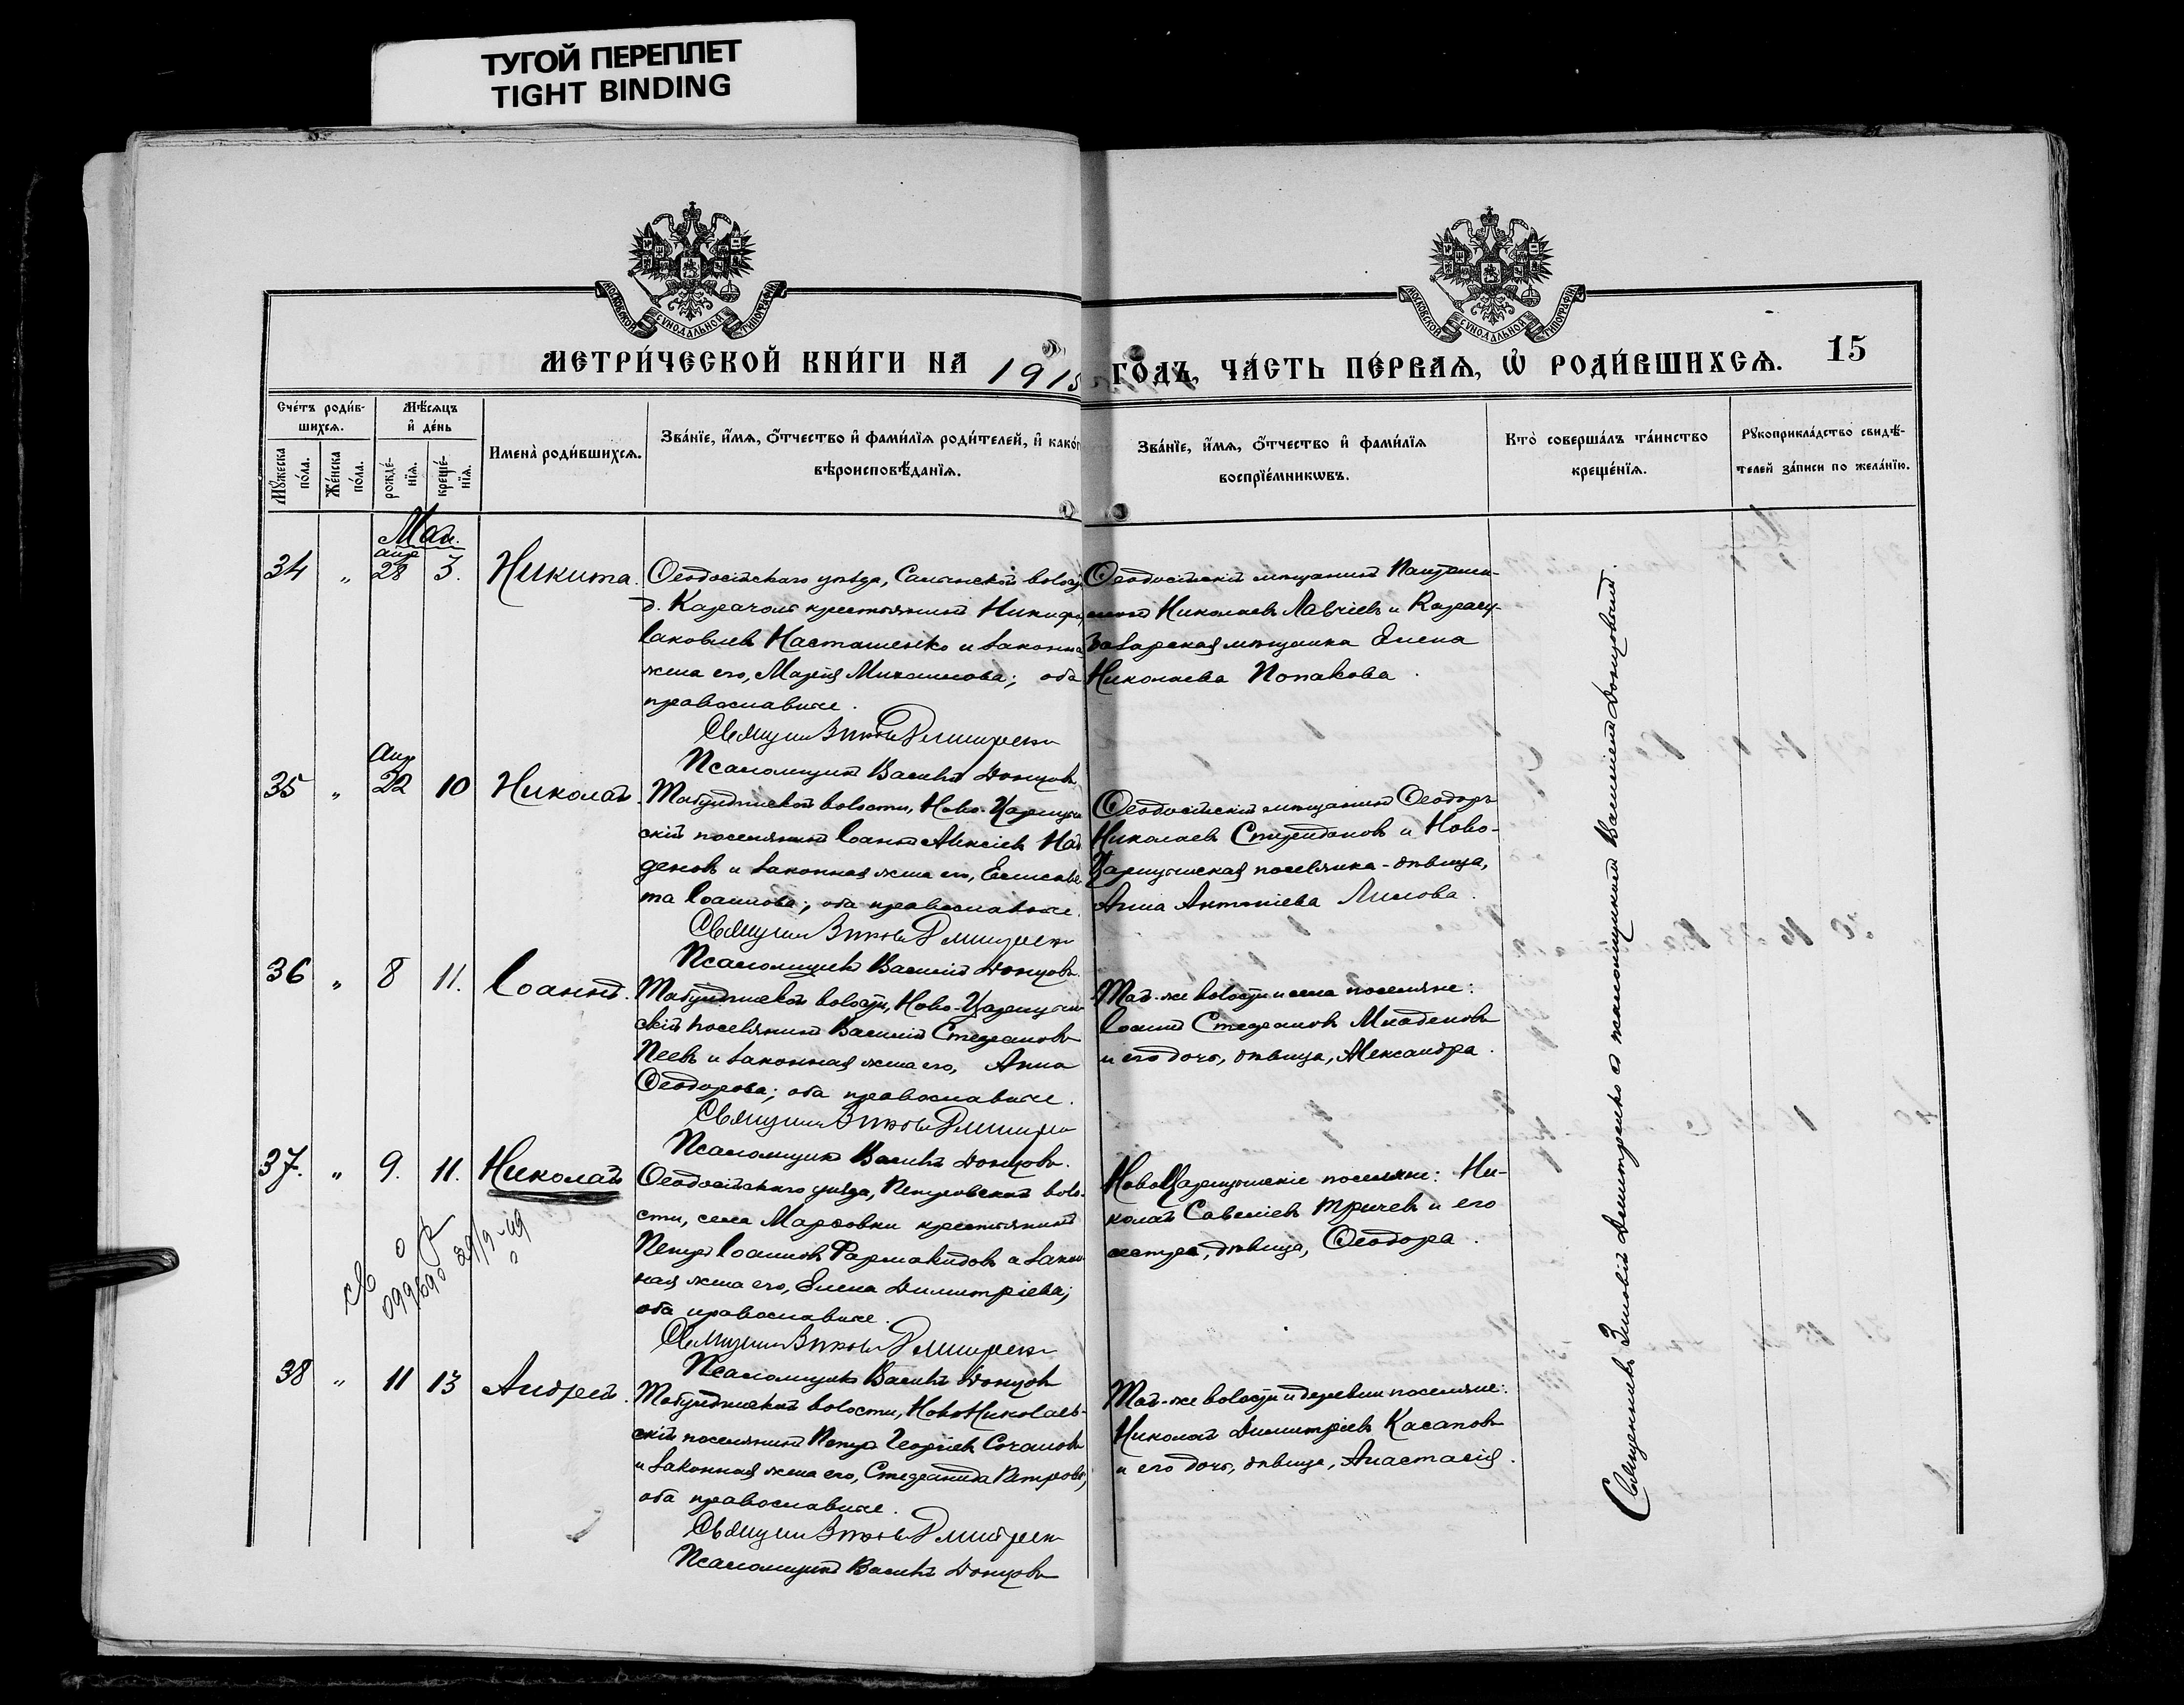 ТУГОЙ ПЕРЕПЛЕТ
TIGHT BINDING
МОСКОВСКОЙ СѴНОДАЛЬНОЙ ТИПОГРАФІИ
МОСКОВСКОЙ СѴНОДАЛЬНОЙ ТИПОГРАФІИ
МЕТРИ́ЧЕСКОЙ КНИ́ГИ НА 1915 ГОДЪ, ЧА́СТЬ ПЕ́РВАѦ, Ѡ҆ РОДИ́ВШИХСѦ. 15
Сче́тъ роди́вшихсѧ.
Мꙋ́жеска по́ла.
Же́нска по́ла.
Мѣ́сѧцъ и҆ де́нь
рожде́нїѧ.
креще́нїѧ.
Имена̀ роди́вшихсѧ.
Зва́нїе, и҆́мѧ, ѻ҆́тчество и҆ фами́лїѧ роди́телей, и҆ како́г
вѣроисповѣ́данїѧ.
Зва́нїе, и҆́мѧ, ѻ҆́тчество и҆ фами́лїѧ
воспрїе́мникѡвъ.
Кто̀ соверша́лъ та́инство
креще́нїѧ.
Рꙋкоприкла́дство свидѣ́-
телей за́писи по жела́нїю.
Май.
34 " апр 28 3. Никита.
Ѳеодосійскаго уѣзда, Салынской волос
д. Карачоль крестьянинъ Никифо
Іаковлевъ Насташенко и законна
жена его, Марія Михаилова; оба
православные.
Священник Зиновій Дмитренко
Псаломщикъ Василій Донцовъ
Ѳеодосійскій мѣщанинъ
Николаевъ Лавчіевъ и Карасу-
базарская мѣщанка Елена
Николаева Попакова.
35 " Апр 22 10 Николай.
Табулдинской волости, Ново-Царицын
скій поселянинъ Іоаннъ Алексіевъ Най
деновъ и законная жена его, Елисаве
та Іоаннова; оба православные.
Священник Зиновій Дмитренко
Псаломщикъ Василій Донцовъ.
Ѳеодосійскій мѣщанинъ Ѳеодоръ
Николаевъ и Ново-
Царицынская поселянка-дѣвица,
Анна Антоніева
36 " 8 11. Іоаннъ.
Табулдинской волости, Ново-Царицын
скій поселянинъ Василій Стефановъ
Пеевъ и законная жена его, Анна
Ѳеодорова; оба православные.
Священник Зиновій Дмитренко
Псаломщикъ Василій Донцовъ.
Той-же волости и села поселяне:
Іоаннъ Стефановъ Младеновъ
и его дочь, дѣвица, Александра.
37. " 9. 11. Николай
Ѳеодосійскаго уѣзда, Петровской воло-
сти, села Марфовки крестьянинъ
Петръ Іоанновъ Фармакидовъ и закон
ная жена его, Елена Димитріева;
оба православные.
Священник Зиновій Дмитренко
Псаломщикъ Василій Донцовъ
НовоЦарицынскіе поселяне: Ни-
колай Савеліевъ Тричевъ и его
сестра, дѣвица, Ѳеодора.
38 " 11 13 Андрей.
Табулдинской волости, НовоНиколаев-
скій поселянинъ Петръ Георгіевъ
и законная жена его, Стефанида Петрова;
оба православные.
Священник Зиновій Дмитренко
Псаломщикъ Василій Донцовъ
Той-же волости и деревни поселяне:
Николай Димитріевъ Касаповъ
и его дочь, дѣвица, Анастасія.
Священникъ Зиновій Димитренко съ псаломщикомъ Василіемъ Донцовымъ.